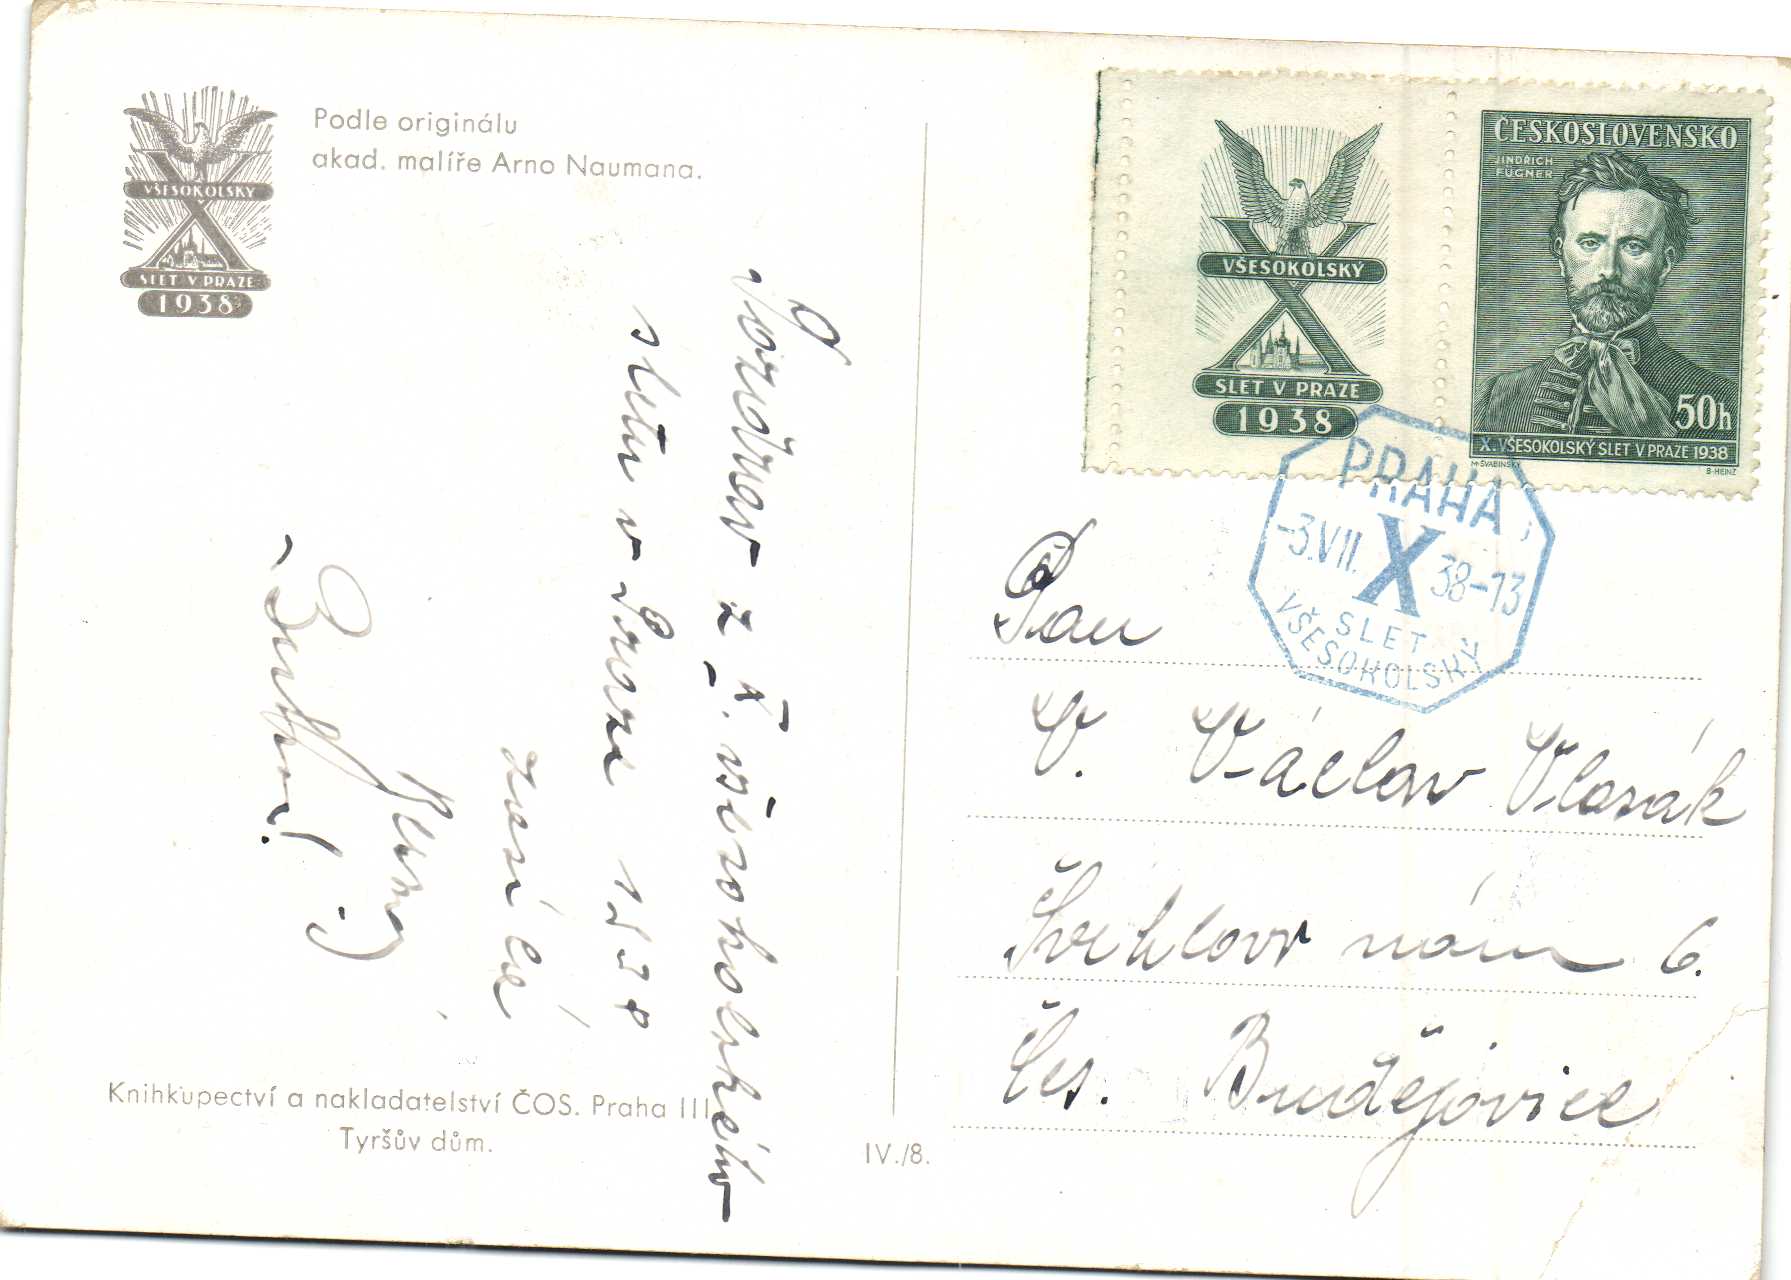 VŠESOKOLSKÝ
X
SLET V PRAZE
1938
Podle originálu
akad. malíře Arno Naumana.
Pozdrav z X. všesokolského
sletu v Praze 1938
zasílá
Knihkupectví a nakladatelství ČOS. Praha III
Tyršův dům.
IV./8.
VŠESOKOLSKÝ
X
SLET V PRAZE
1938
ČESKOSLOVENSKO
JINDŘICH
FÜGNER
50h
X. VŠESOKOLSKÝ SLET V PRAZE 1938
M. ŠVABINSKÝ
B. HEINZ
PRAHA 1
-3.VII. X 38-13
SLET
VŠESOKOLSKÝ
Pan
V. Václav Vlasák
Švehlovo nám 6.
Čes. Budějovice